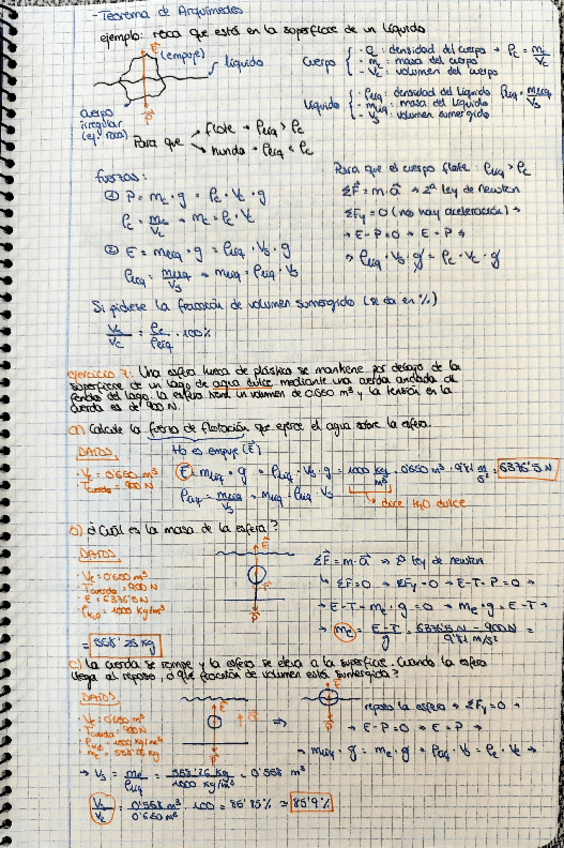 - Teorema de Arquímedes
ejemplo: roca que está en la superficie de un líquido
E (empuje)
líquido
cuerpo irregular (ej: roca)
P
cuerpo { · ρc : densidad del cuerpo → ρc = mc/Vc
· mc : masa del cuerpo
· Vc : volumen del cuerpo
líquido { · ρliq : densidad del líquido ρliq = mliq/Vs
· mliq : masa del líquido
· Vs : volumen sumergido
Para que
flote → ρliq > ρc
hunda → ρliq < ρc
fuerzas:
① P = mc · g = ρc · Vc · g
ρc = mc/Vc → mc = ρc · Vc
② E = mliq · g = ρliq · Vs · g
ρliq = mliq/Vs → mliq = ρliq · Vs
Para que el cuerpo flote: ρliq > ρc
ΣF = m · a → 2ª ley de newton
ΣFy = 0 (no hay aceleración) →
→ E - P = 0 → E = P →
→ ρliq · Vs · g = ρc · Vc · g
Si pidiese la fracción de volumen sumergido (se da en %)
Vs/Vc = ρc/ρliq · 100%
ejercicio 7: Una esfera hueca de plástico se mantiene por debajo de la
superficie de un lago de agua dulce mediante una cuerda anclada al
fondo del lago. La esfera tiene un volumen de 0'650 m³ y la tensión en la
cuerda es de 900 N.
a) Calcule la fuerza de flotación que ejerce el agua sobre la esfera.
DATOS
· Vc = 0'650 m³
· Tcuerda = 900 N
→ es empuje (E)
E = mliq · g = ρliq · Vs · g = 1000 kg/m³ · 0'650 m³ · 9'81 m/s² = 6376'5 N
ρliq = mliq/Vs → mliq = ρliq · Vs
→ dice H2O dulce
b) ¿Cuál es la masa de la esfera?
DATOS
· Vc = 0'650 m³
· Tcuerda = 900 N
· E = 6376'5 N
· ρH2O = 1000 kg/m³
ΣF = m · a → 2ª ley de newton
↳ ΣF = 0 → ΣFy = 0 → E - T - P = 0 →
→ E - T - mc · g = 0 → mc · g = E - T →
→ mc = E - T/g = 6376'5 N - 900 N/9'81 m/s² =
= 558'26 kg
c) La cuerda se rompe y la esfera se eleva a la superficie. Cuando la esfera
llega al reposo, ¿qué fracción de volumen estará sumergida?
DATOS
· Vc = 0'650 m³
· Tcuerda = 900 N
· ρH2O = 1000 kg/m³
· mc = 558'26 kg
reposo la esfera → ΣFy = 0 →
→ E - P = 0 → E = P →
→ mliq · g = mc · g → ρliq · Vs = ρc · Vc →
→ Vs = mc/ρliq = 558'26 kg/1000 kg/m³ = 0'558 m³
Vs/Vc = 0'558 m³/0'650 m³ · 100 = 85'85% ≈ 85'9%